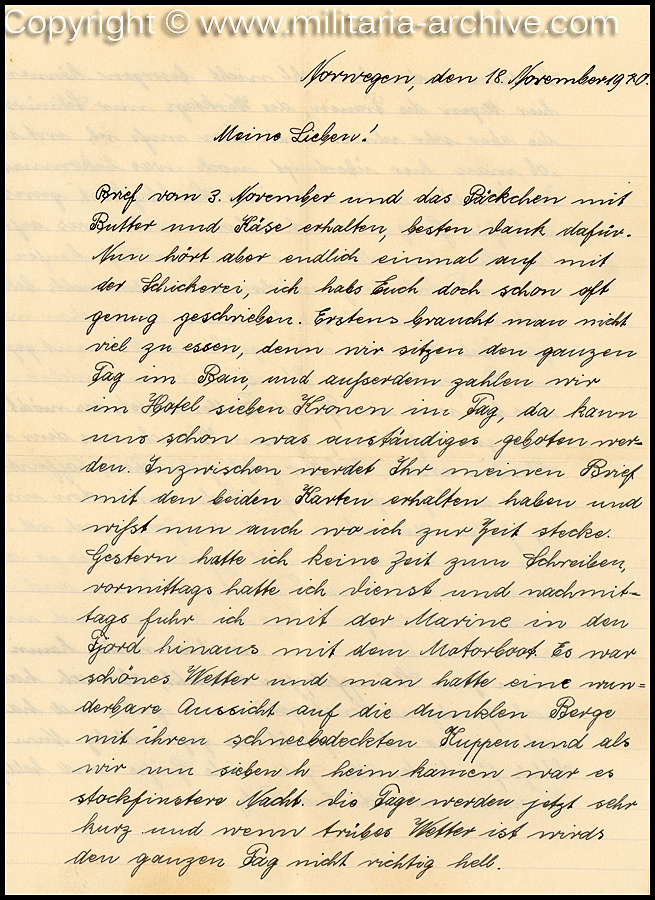 Copyright © www.militaria-archive.com
Norwegen, den 18. November 1940.
Meine Lieben!
Brief vom 3. November und das Päckchen mit
Butter und Käse erhalten, besten Dank dafür.
Nun hört aber endlich einmal auf mit
der Schickerei, ich habs Euch doch schon oft
genug geschrieben. Erstens braucht man nicht
viel zu essen, denn wir sitzen den ganzen
Tag im Bau, und ausserdem zahlen wir
im Hotel sieben Kronen im Tag, da kann
uns schon was anständiges geboten wer-
den. Inzwischen werdet Ihr meinen Brief
mit den beiden Karten erhalten haben und
wisst nun auch wo ich zur Zeit stecke.
Gestern hatte ich keine Zeit zum Schreiben,
vormittags hatte ich Dienst und nachmit-
tags fuhr ich mit der Marine in den
Fjord hinaus mit dem Motorboot. Es war
schönes Wetter und man hatte eine wun-
derbare Aussicht auf die dunklen Berge
mit ihren schneebedeckten Kuppen und als
wir um sieben h heim kamen war es
stockfinstere Nacht. Die Tage werden jetzt sehr
kurz und wenn trübes Wetter ist wirds
den ganzen Tag nicht richtig hell.